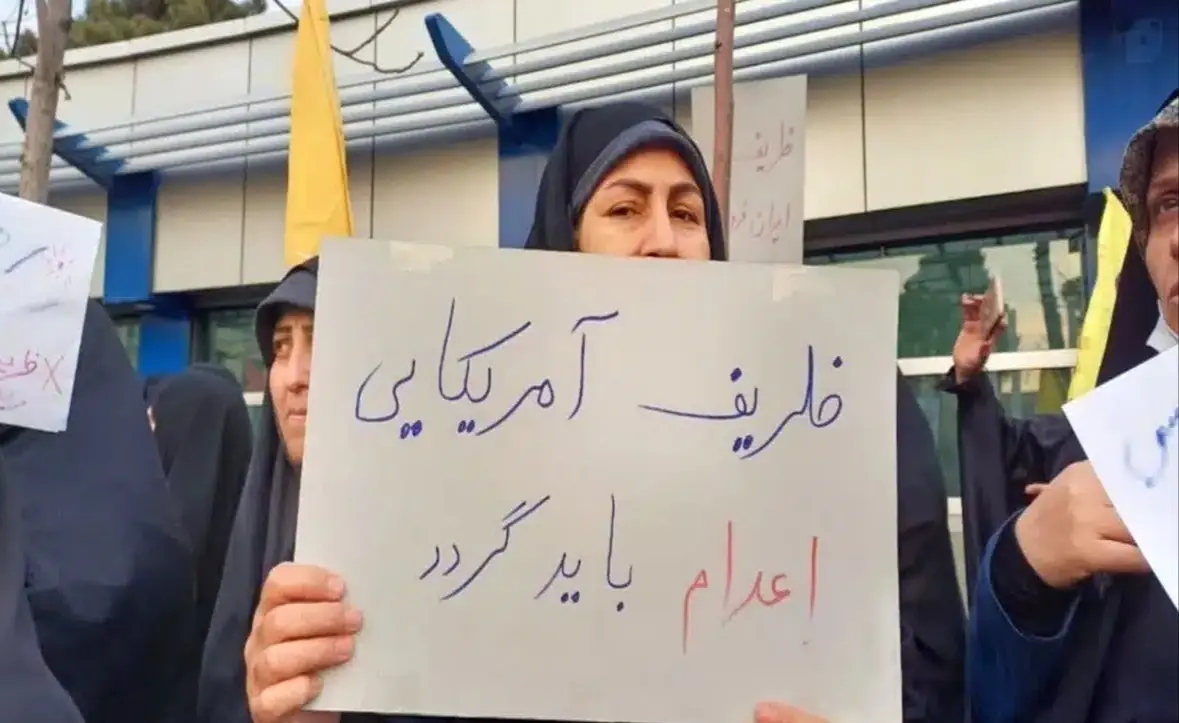 ظریف آمریکایی
اعدام باید گردد
ظریف
ایران فرو